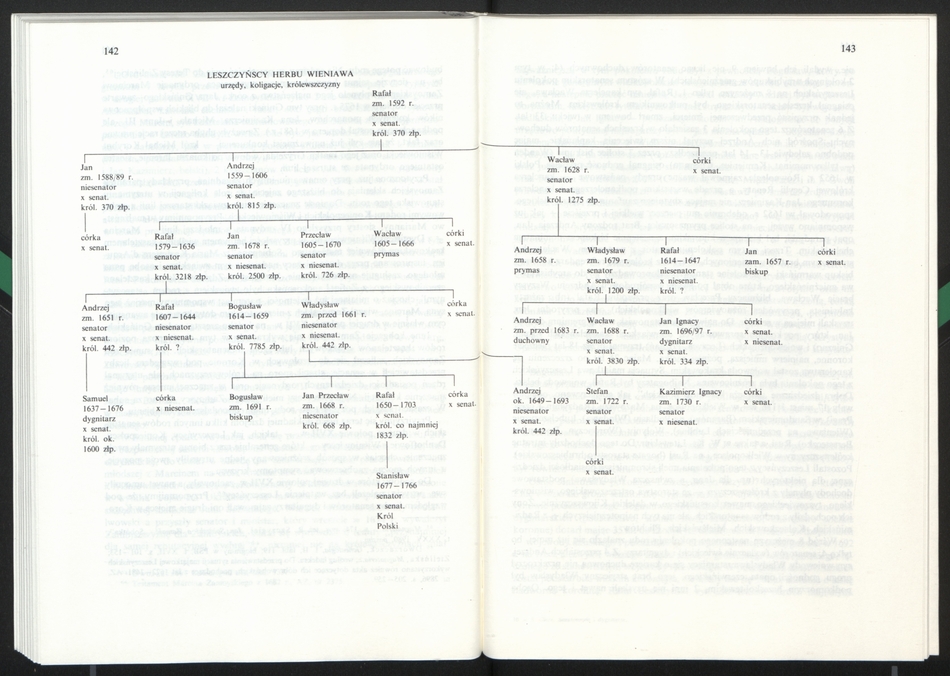 142
LESZCZYŃSCY HERBU WIENIAWA
urzędy, koligacje, królewszczyzny
Rafał
zm. 1592 r.
senator
x senat.
król. 370 złp.
Jan
zm. 1588/89 r.
niesenator
x senat.
król. 370 złp.
Andrzej
1559–1606
senator
x senat.
król. 815 złp.
córka
x senat.
Rafał
1579–1636
senator
x senat.
król. 3218 złp.
Jan
zm. 1678 r.
senator
x niesenat.
król. 2500 złp.
Przecław
1605–1670
senator
x niesenat.
król. 726 złp.
Wacław
1605–1666
prymas
córki
x senat.
Andrzej
zm. 1651 r.
senator
x senat.
król. 442 złp.
Rafał
1607–1644
niesenator
x niesenat.
król. ?
Bogusław
1614–1659
senator
x senat.
król. 7785 złp.
Władysław
zm. przed 1661 r.
niesenator
x niesenat.
król. 442 złp.
córka
x senat.
Samuel
1637–1676
dygnitarz
x senat.
król. ok.
1600 złp.
córka
x niesenat.
Bogusław
zm. 1691 r.
biskup
Jan Przecław
zm. 1668 r.
niesenator
król. 668 złp.
Rafał
1650–1703
x senat.
król. co najmniej
1832 złp.
córka
x senat.
Stanisław
1677–1766
senator
x senat.
Król
Polski
143
Wacław
zm. 1628 r.
senator
x senat.
król. 1275 złp.
córki
x senat.
Andrzej
zm. 1658 r.
prymas
Władysław
zm. 1679 r.
senator
x senat.
król. 1200 złp.
Rafał
1614–1647
niesenator
x niesenat.
król. ?
Jan
zam. 1657 r.
biskup
córki
x senat.
Andrzej
zm. przed 1683 r.
duchowny
Wacław
zm. 1688 r.
senator
x senat.
król. 3830 złp.
Jan Ignacy
zm. 1696/97 r.
dygnitarz
x senat.
król. 334 złp.
córki
x senat.
x niesenat.
Andrzej
ok. 1649–1693
niesenator
x senat.
król. 442 złp.
Stefan
zm. 1722 r.
senator
x senat.
Kazimierz Ignacy
zm. 1730 r.
senator
x niesenat.
córki
x senat.
córki
x senat.